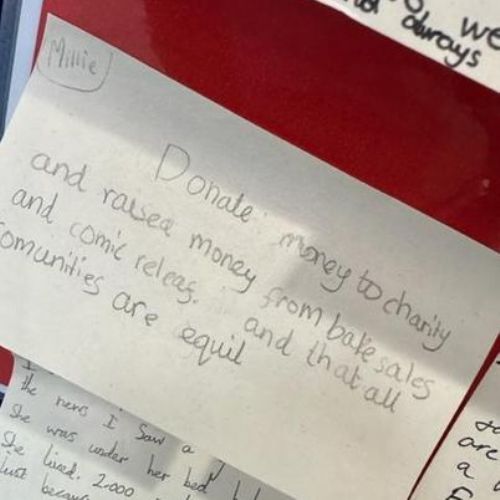 we
always
Millie
Donate money to charity
and raised money from bake sales
and comic releas. and that all
comunities are equil
the news I saw a
She was under her bed
She lived. 2,000
are
a